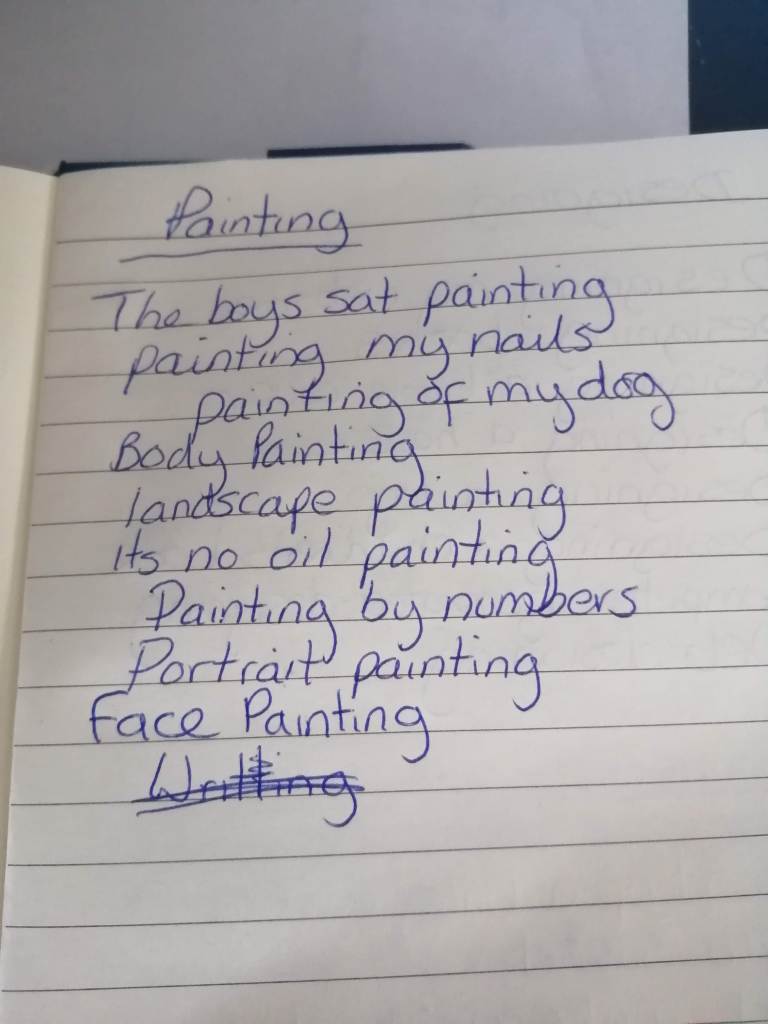 Painting
The boys sat painting
painting my nails
painting of my dog
Body Painting
landscape painting
its no oil painting
Painting by numbers
Portrait painting
Face Painting